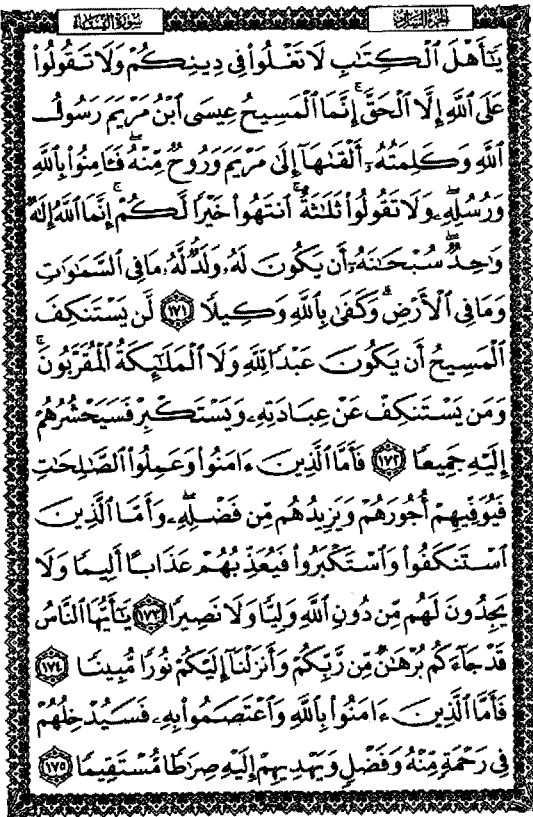 سورة النساء
الجزء السادس
يَٰٓأَهۡلَ ٱلۡكِتَٰبِ لَا تَغۡلُواْ فِي دِينِكُمۡ وَلَا تَقُولُواْ
عَلَى ٱللَّهِ إِلَّا ٱلۡحَقَّۚ إِنَّمَا ٱلۡمَسِيحُ عِيسَى ٱبۡنُ مَرۡيَمَ رَسُولُ
ٱللَّهِ وَكَلِمَتُهُۥٓ أَلۡقَىٰهَآ إِلَىٰ مَرۡيَمَ وَرُوحٞ مِّنۡهُۖ فَـَٔامِنُواْ بِٱللَّهِ
وَرُسُلِهِۦۖ وَلَا تَقُولُواْ ثَلَٰثَةٌۚ ٱنتَهُواْ خَيۡرٗا لَّكُمۡۚ إِنَّمَا ٱللَّهُ إِلَٰهٞ
وَٰحِدٞۖ سُبۡحَٰنَهُۥٓ أَن يَكُونَ لَهُۥ وَلَدٞۘ لَّهُۥ مَا فِي ٱلسَّمَٰوَٰتِ
وَمَا فِي ٱلۡأَرۡضِۗ وَكَفَىٰ بِٱللَّهِ وَكِيلٗا ١٧١ لَّن يَسۡتَنكِفَ
ٱلۡمَسِيحُ أَن يَكُونَ عَبۡدٗا لِّلَّهِ وَلَا ٱلۡمَلَٰٓئِكَةُ ٱلۡمُقَرَّبُونَۚ
وَمَن يَسۡتَنكِفۡ عَنۡ عِبَادَتِهِۦ وَيَسۡتَكۡبِرۡ فَسَيَحۡشُرُهُمۡ
إِلَيۡهِ جَمِيعٗا ١٧٢ فَأَمَّا ٱلَّذِينَ ءَامَنُواْ وَعَمِلُواْ ٱلصَّٰلِحَٰتِ
فَيُوَفِّيهِمۡ أُجُورَهُمۡ وَيَزِيدُهُم مِّن فَضۡلِهِۦۖ وَأَمَّا ٱلَّذِينَ
ٱسۡتَنكَفُواْ وَٱسۡتَكۡبَرُواْ فَيُعَذِّبُهُمۡ عَذَابًا أَلِيمٗا وَلَا
يَجِدُونَ لَهُم مِّن دُونِ ٱللَّهِ وَلِيّٗا وَلَا نَصِيرٗا ١٧٣ يَٰٓأَيُّهَا ٱلنَّاسُ
قَدۡ جَآءَكُم بُرۡهَٰنٞ مِّن رَّبِّكُمۡ وَأَنزَلۡنَآ إِلَيۡكُمۡ نُورٗا مُّبِينٗا ١٧٤
فَأَمَّا ٱلَّذِينَ ءَامَنُواْ بِٱللَّهِ وَٱعۡتَصَمُواْ بِهِۦ فَسَيُدۡخِلُهُمۡ
فِي رَحۡمَةٖ مِّنۡهُ وَفَضۡلٖ وَيَهۡدِيهِمۡ إِلَيۡهِ صِرَٰطٗا مُّسۡتَقِيمٗا ١٧٥